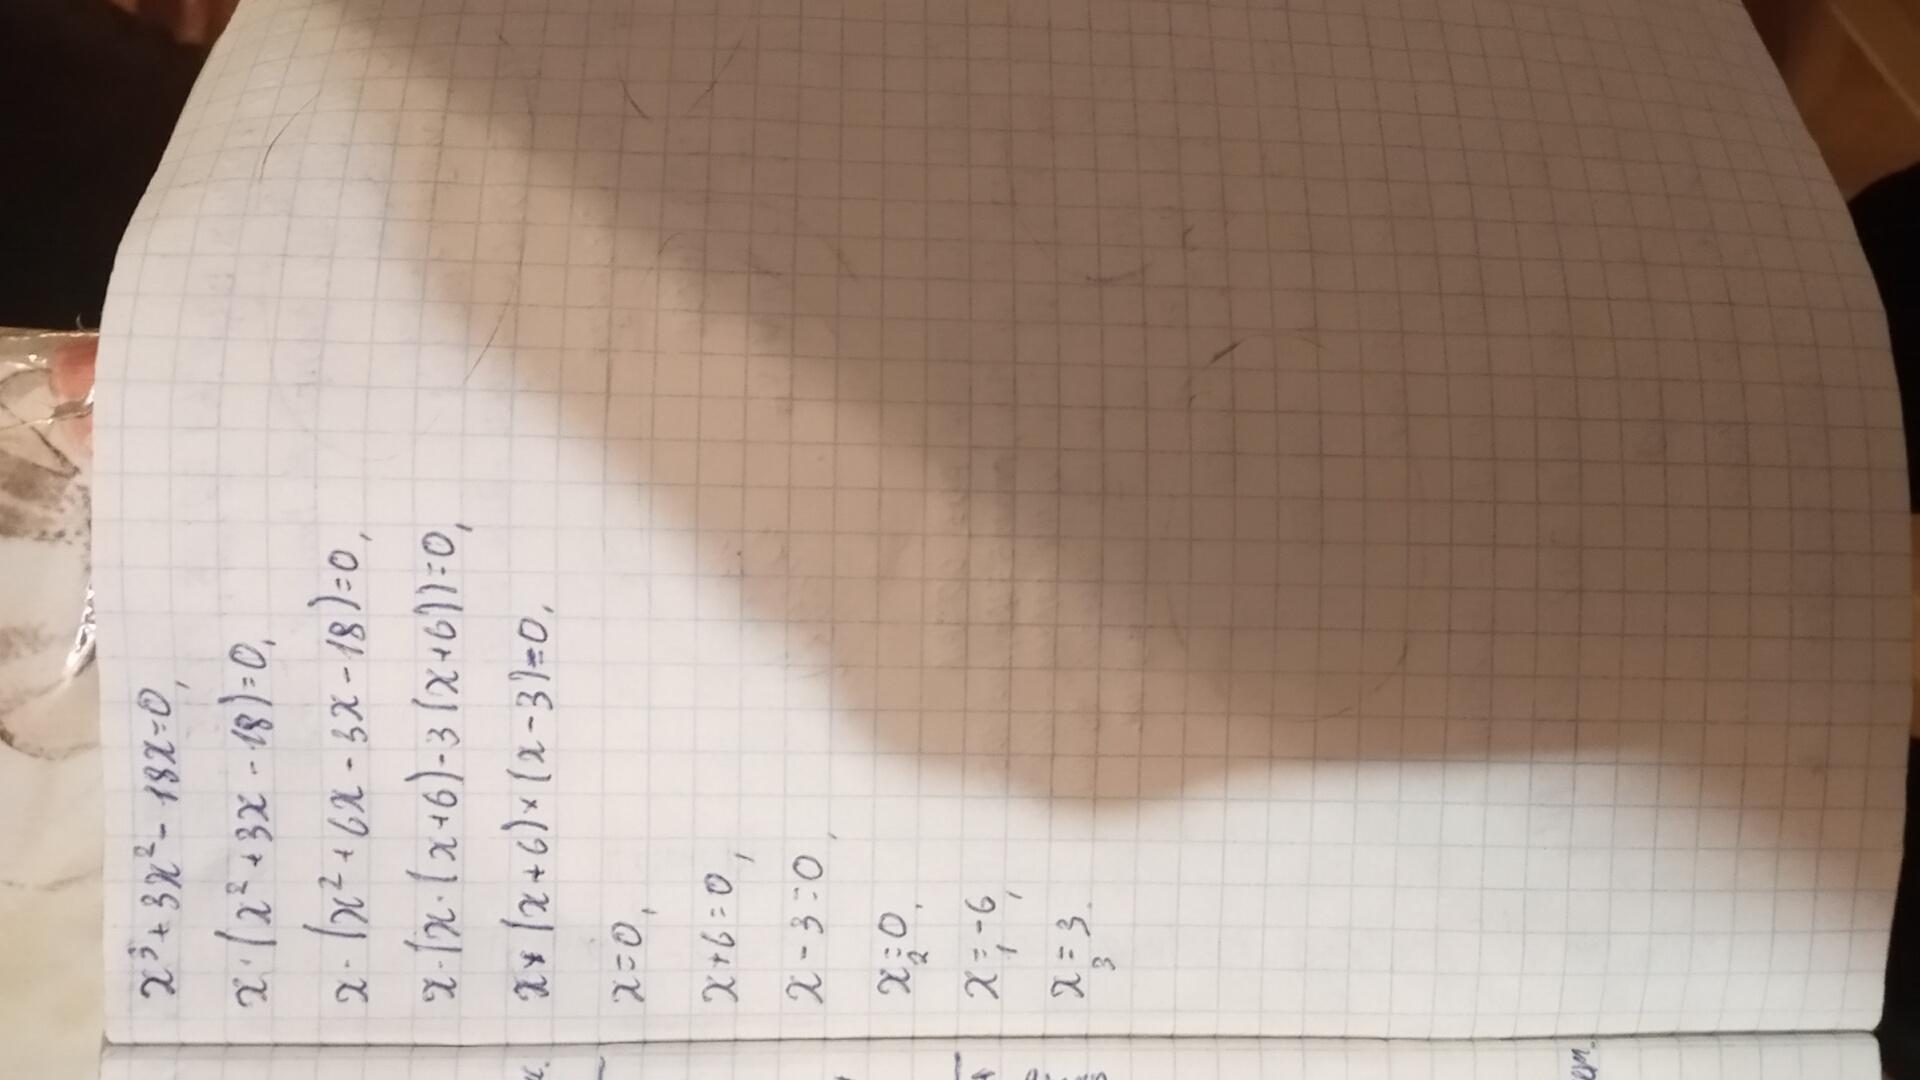 x³+3x²-18x=0,
x·(x²+3x-18)=0,
x·(x²+6x-3x-18)=0,
x·(x·(x+6)-3(x+6))=0,
x×(x+6)×(x-3)=0,
x=0,
x+6=0,
x-3=0,
x₂=0,
x₁=-6,
x₃=3.